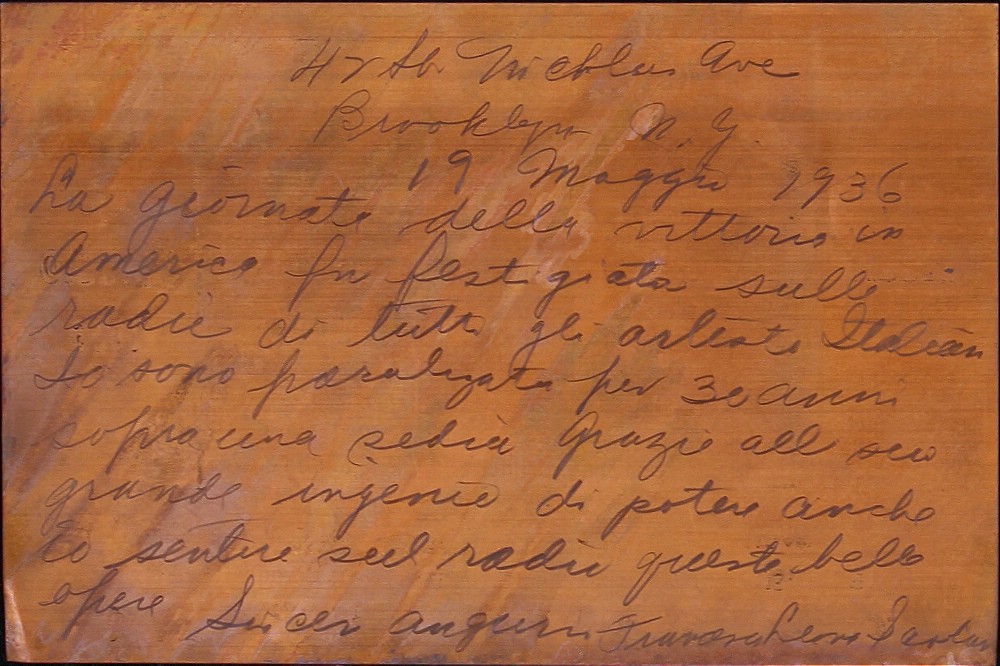 42 St. Nicholas Ave
Brooklyn N.Y.
19 Maggio 1936
La giornata della vittoria in
America fu festigiata sulla
radio di tutti gli artisti Italian
Io sono paralizata per 30 anni
sopra una sedia Grazie all suo
grande ingenio di potere anche
io sentire sul radio queste belle
opere Sincer auguri